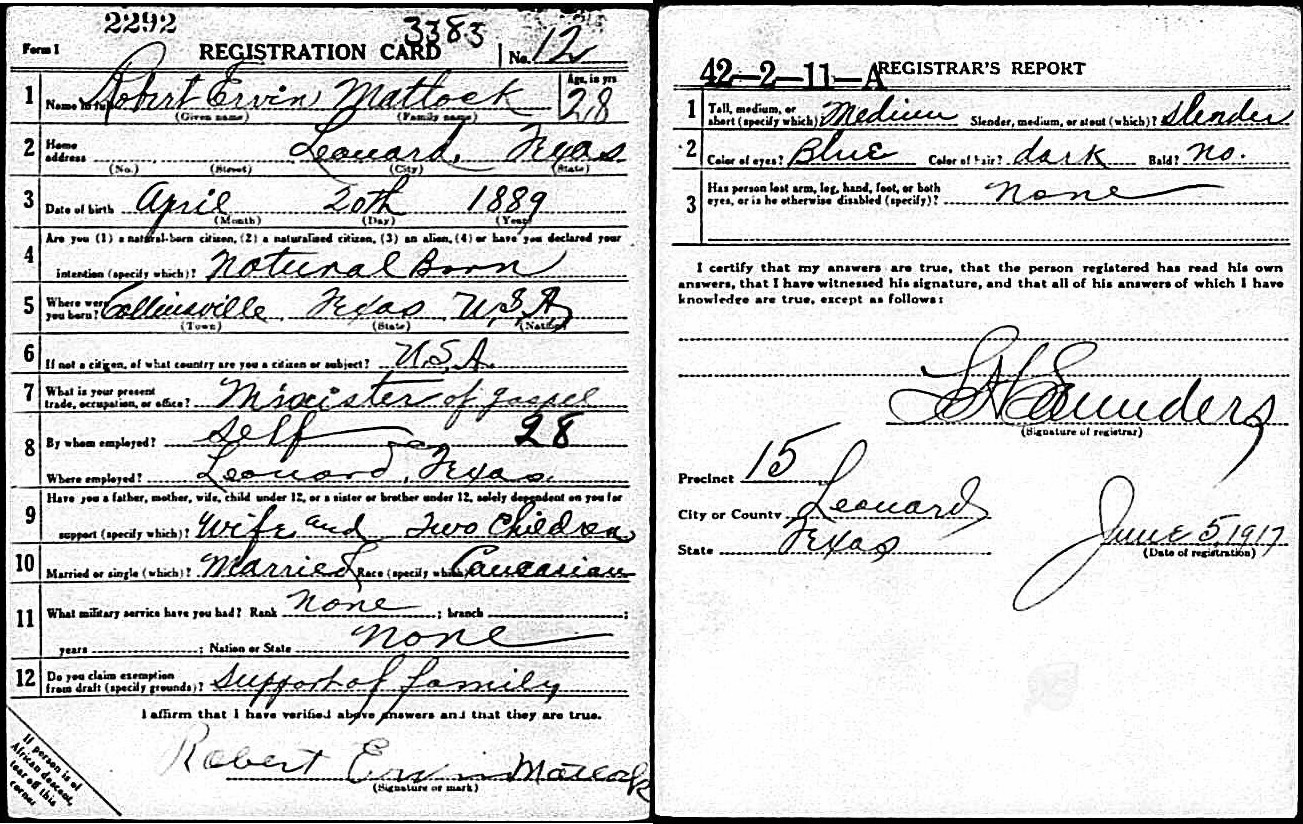 2292
3383
Form 1 REGISTRATION CARD No. 12
1 Name in full Robert Ervin Matlock Age, in yrs 28
(Given name) (Family name)
2 Home address Leonard, Texas
(No.) (Street) (City) (State)
3 Date of birth April 20th 1889
(Month) (Day) (Year)
4 Are you (1) a natural-born citizen, (2) a naturalized citizen, (3) an alien, (4) or have you declared your
intention (specify which)? Natural Born
5 Where were you born? Collinsville Texas U.S.A
(Town) (State) (Nation)
6 If not a citizen, of what country are you a citizen or subject? U.S.A.
7 What is your present trade, occupation, or office? Minister of gospel
8 By whom employed? self 28
Where employed? Leonard, Texas.
9 Have you a father, mother, wife, child under 12, or a sister or brother under 12, solely dependent on you for
support (specify which)? Wife and Two Children
10 Married or single (which)? Married Race (specify which) Caucasian
11 What military service have you had? Rank none ; branch ;
years ; Nation or State none
12 Do you claim exemption from draft (specify grounds)? Support of family
I affirm that I have verified above answers and that they are true.
Robert Ervin Matlock
(Signature or mark)
If person is of
African descent,
tear off this
corner
42-2-11-A REGISTRAR'S REPORT
1 Tall, medium, or short (specify which)? Medium Slender, medium, or stout (which)? Slender
2 Color of eyes? Blue Color of hair? dark Bald? no.
3 Has person lost arm, leg, hand, foot, or both eyes, or is he otherwise disabled (specify)? none
I certify that my answers are true, that the person registered has read his own
answers, that I have witnessed his signature, and that all of his answers of which I have
knowledge are true, except as follows:
Saunders
(Signature of registrar)
Precinct 15
City or County Leonard
State Texas
June 5, 1917
(Date of registration)